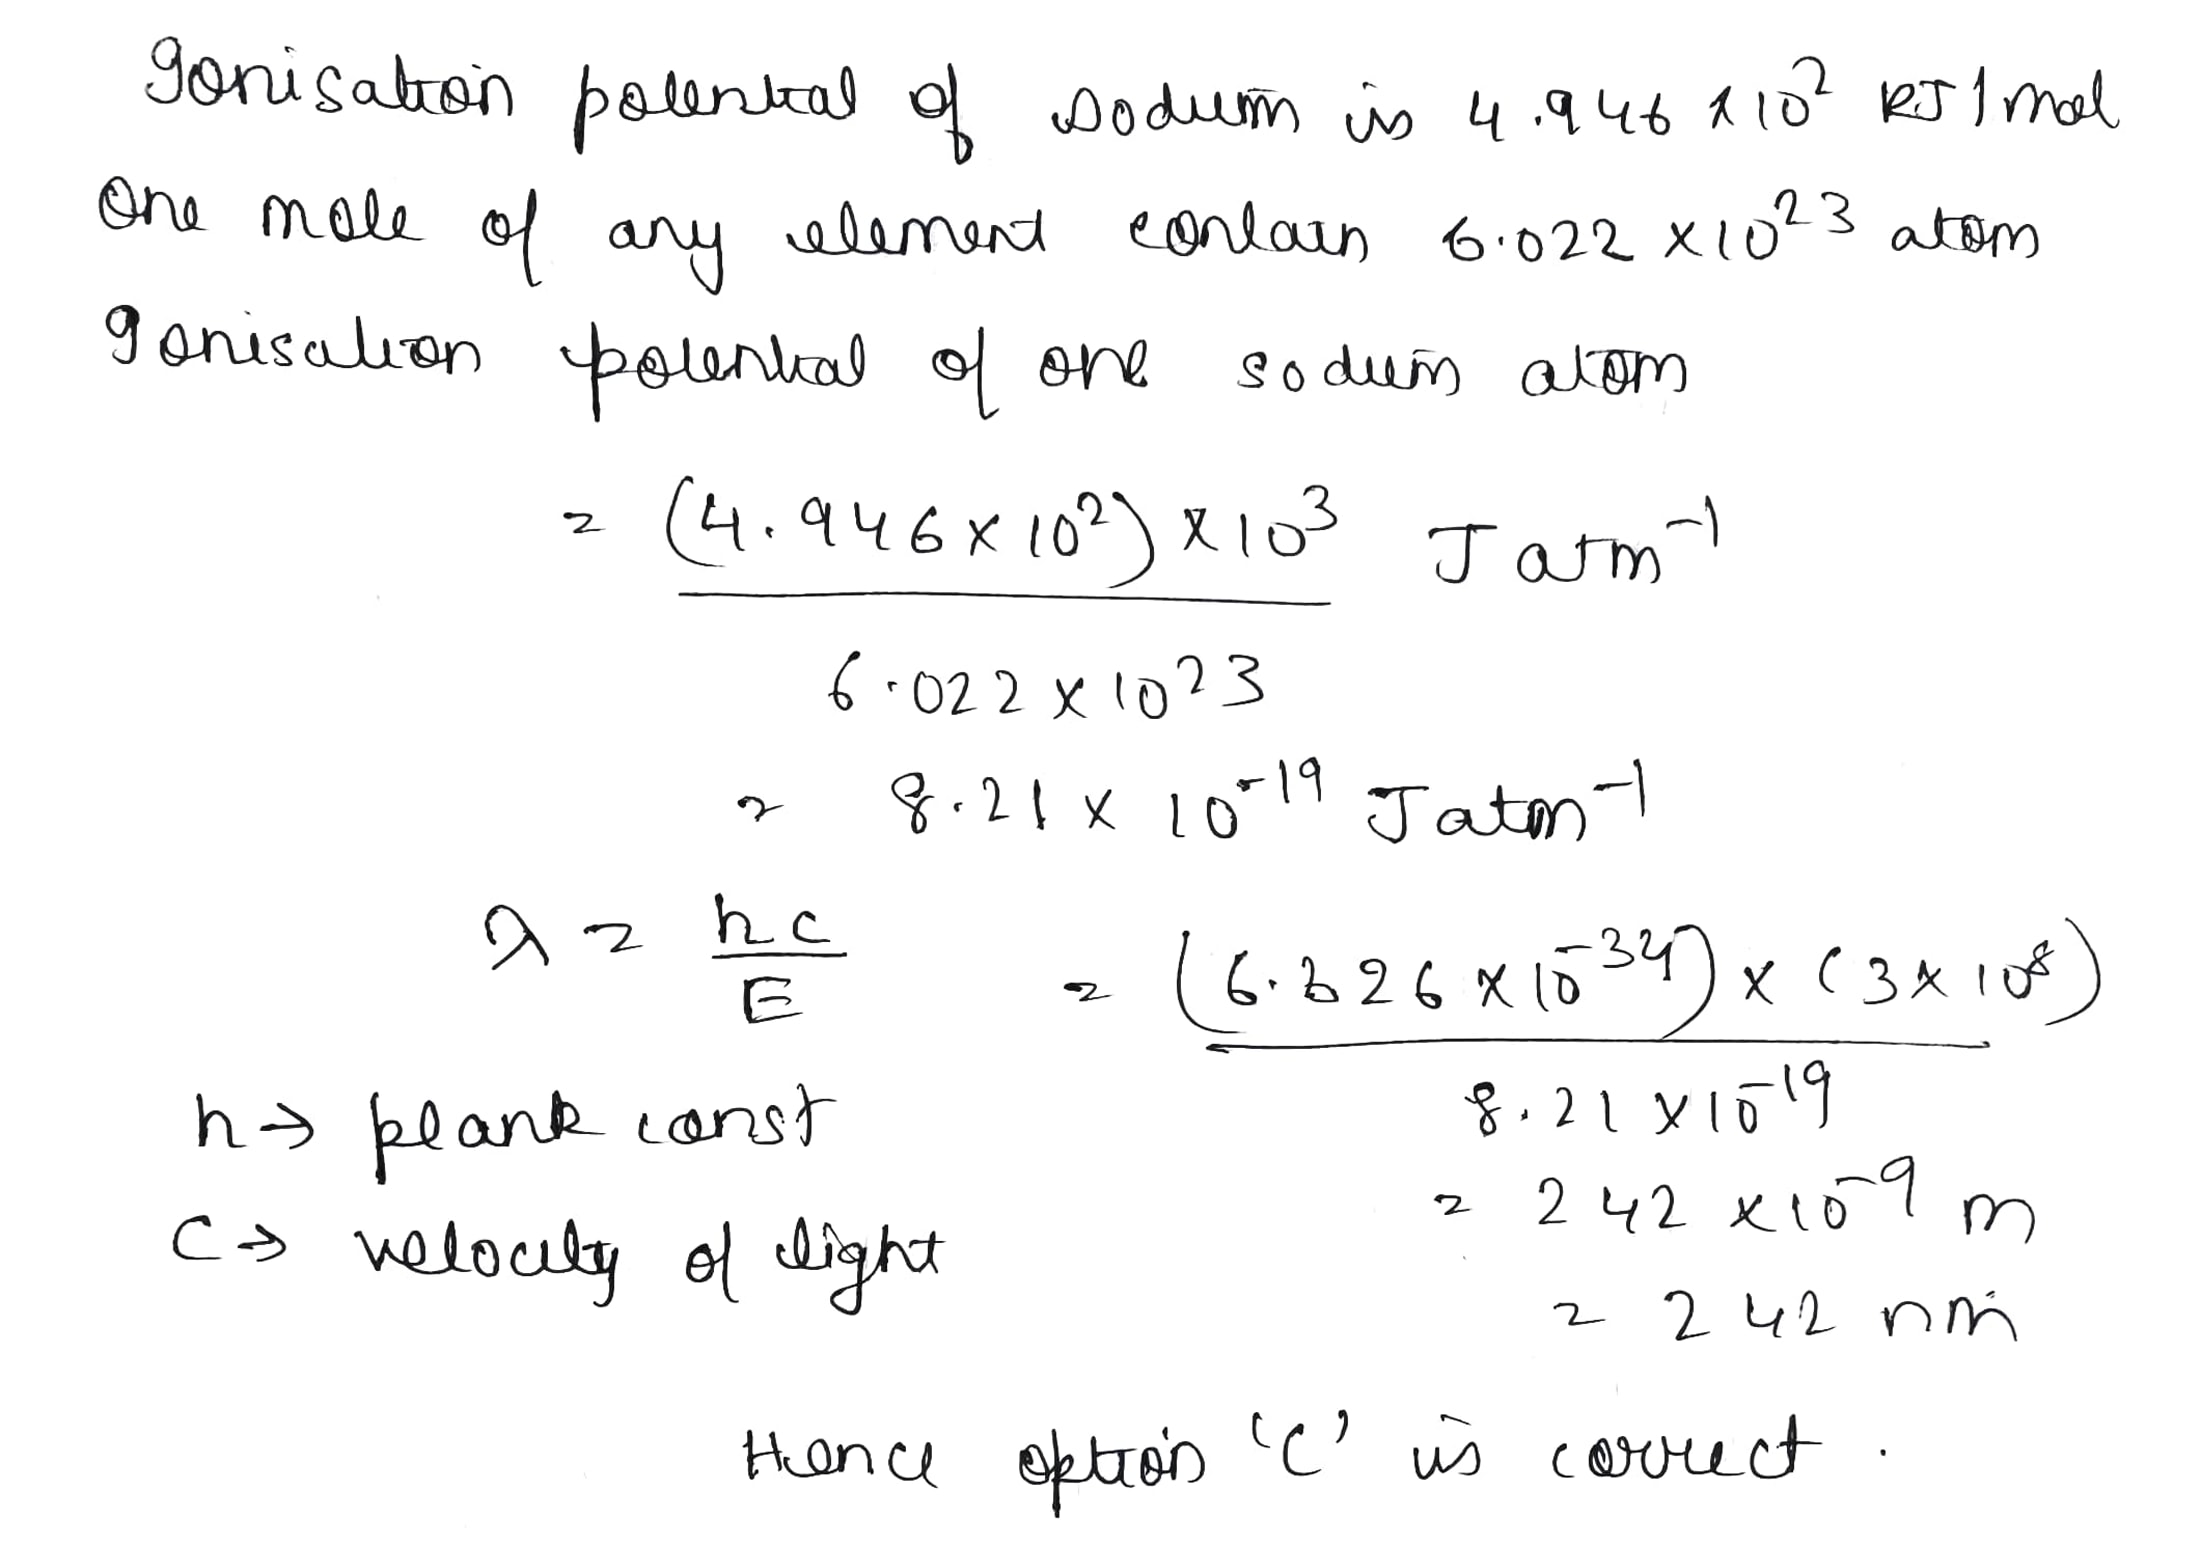 Ionisation potential of sodium is 4.946 x 10² KJ/mol
One mole of any element contain 6.022 x 10²³ atom
Ionisation potential of one sodium atom
= (4.946 x 10²) x 10³ J atm⁻¹
6.022 x 10²³
= 8.21 x 10⁻¹⁹ J atm⁻¹
λ = hc / E = (6.626 x 10⁻³⁴) x (3 x 10⁸)
8.21 x 10⁻¹⁹
h → plank const
= 242 x 10⁻⁹ m
C → velocity of light
= 242 nm
Hence option 'C' is correct.